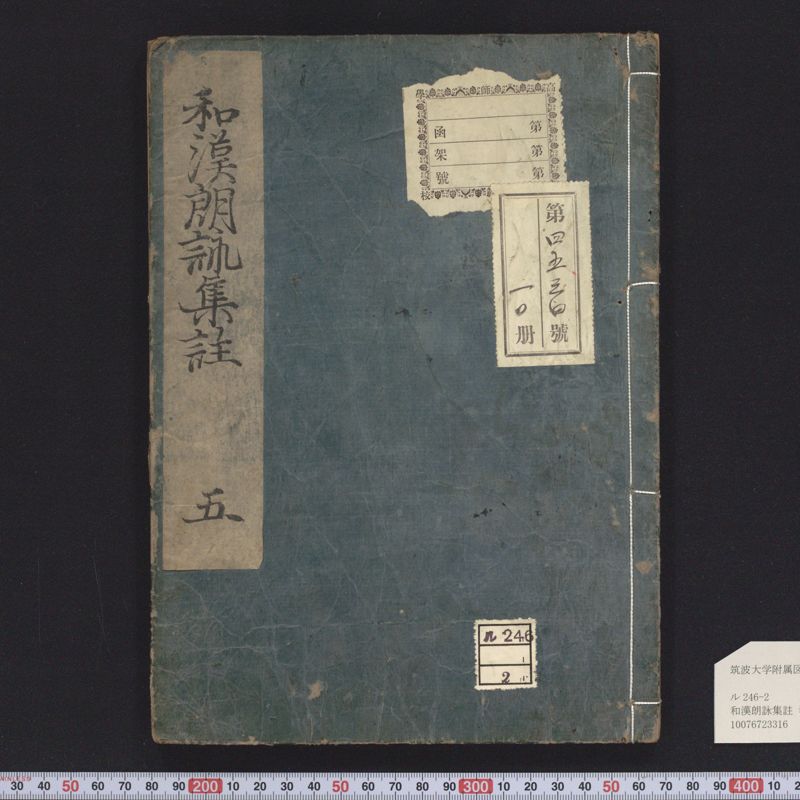 和漢朗詠集註
五
高師學校
第 函
第 架
第 號
第四五三〇號
一〇册
ル 246
2
筑波大学附属図
ル 246-2
和漢朗詠集註
10076723316
30 40 50 60 70 80 90 200 10 20 30 40 50 60 70 80 90 300 10 20 30 40 50 60 70 80 90 400 10